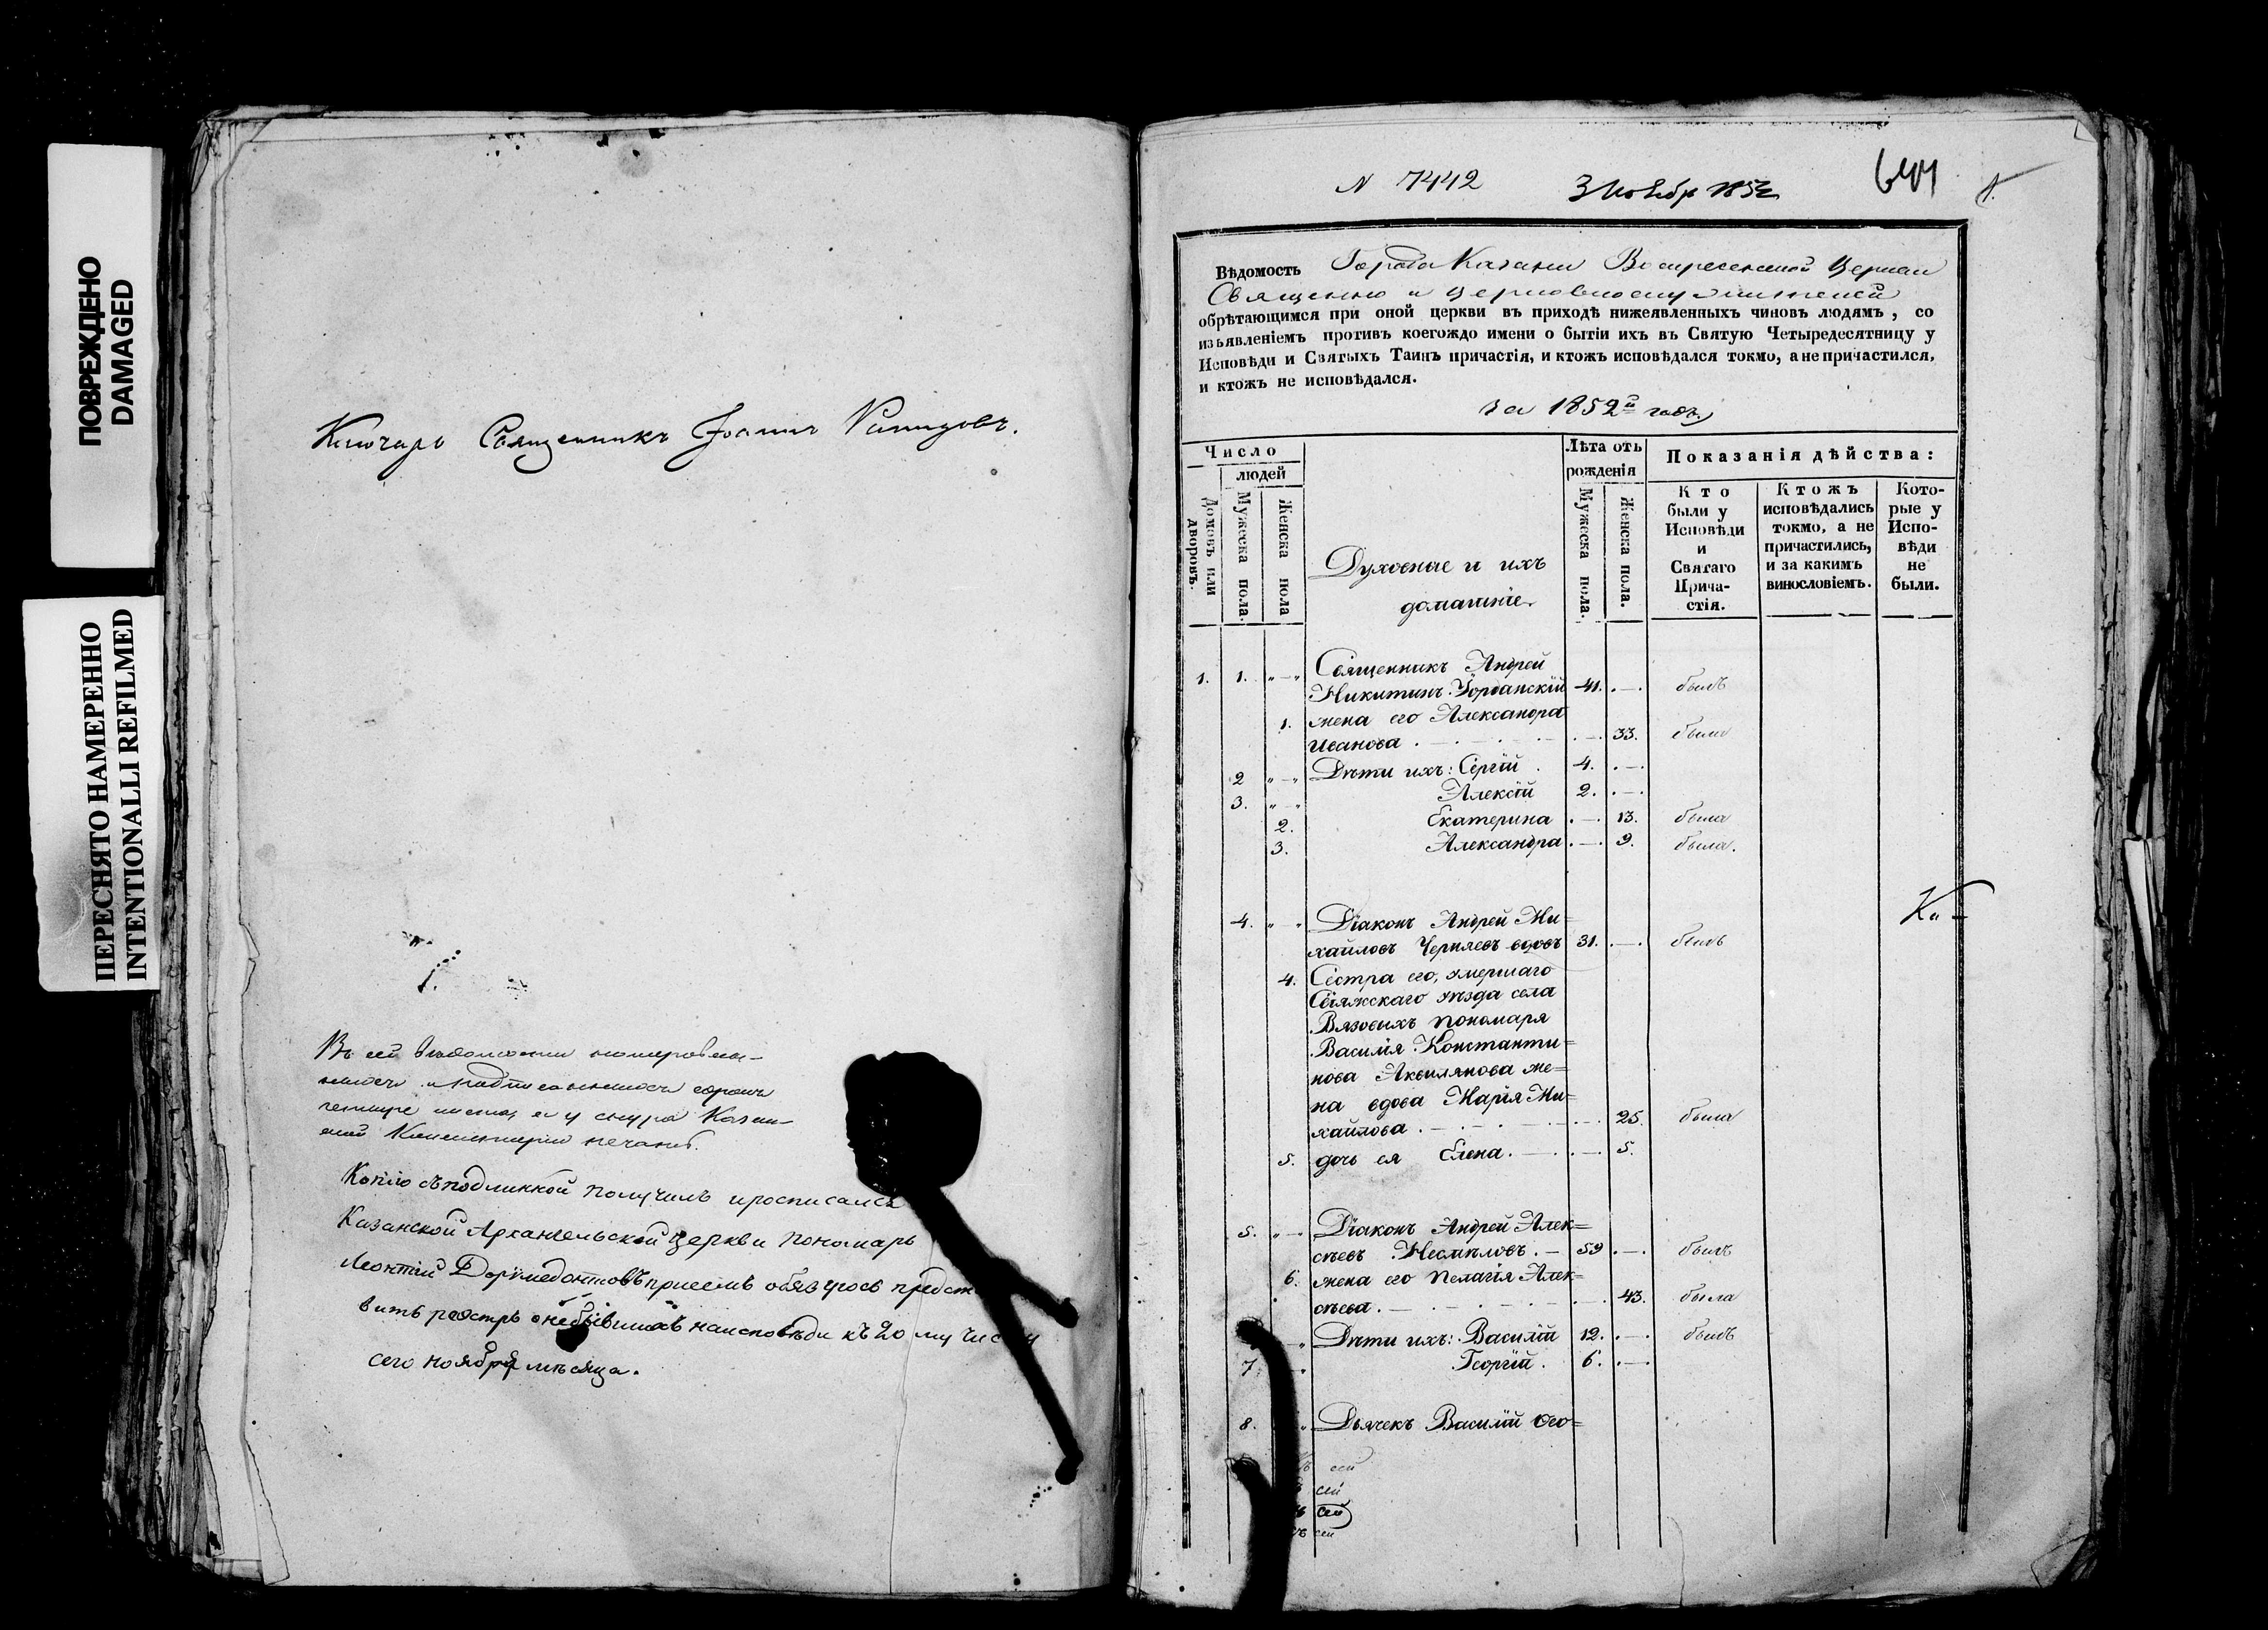 ПОВРЕЖДЕНО
DAMAGED
ПЕРЕСНЯТО НАМЕРЕННО
INTENTIONALLI REFILMED
Ключарь Священникъ Іоаннъ
Въ сей
листа, и у снура Казан-
ской Консисторіи печать.
Копію съ подлинной получилъ и росписался
Казанской Архангельской Церкви пономарь
Леонтій Доримедонтовъ при семъ обязуюсь предста
вить реэстръ о небывшихъ на исповѣди къ 20 му числу
сего ноября мѣсяца.
N 7442 3 Ноябр 1852 644 1.
Вѣдомость Города Казани Воскресенской Церкви
Священно и церковно
обрѣтающимся при оной церкви въ приходѣ нижеявленныхъ чиновъ людямъ, со
изъявленіемъ противъ коегождо имени о бытіи ихъ въ Святую Четыредесятницу у
Исповѣди и Святыхъ Таинъ причастія, и ктожъ исповѣдался токмо, а не причастился,
и ктожъ не исповѣдался.
за 1852й годъ.
Число
людей
Домовъ или дворовъ.
Мужеска пола.
Женска пола
Духовные и ихъ
домашніе.
Лѣта отъ
рожденія
Мужеска пола.
Женска пола.
Показанія дѣйства:
Кто
были у
Исповѣди
и
Святаго
Прича-
стія.
Ктожъ
исповѣдались
токмо, а не
причастились,
и за какимъ
винословіемъ.
Кото-
рые у
Испо-
вѣди
не
были.
1. 1. „—„ Священникъ Андрей
Никитинъ 41. .—. былъ
1. жена его Александра
Иванова . — . — . — 33. была
2 „—„ Дѣти ихъ: Сергій . 4. .—.
3. „—„ Алексій 2. .—.
2. Екатерина .—. 13. была
3. Александра .—. 9. была.
4. „—„ Діаконъ Андрей Ми=
хайловъ Черняевъ вдовъ 31. .—. былъ
Ка=
4. Сестра его, умершаго
Свіяжскаго уѣзда села
Вязовыхъ пономаря
Василія Константи=
нова Аквилянова же=
на вдова Марія Ми=
хайлова . — . — . — 25. была
5. дочь ея Елена. — . — . 5.
5. „—„ Діаконъ Андрей Алек=
сѣевъ Несмѣловъ. — 59 .—. былъ
6. жена его Пелагія Алек=
сѣева. — . — . — 43. была
„ Дѣти ихъ: Василій 12. .—. былъ
7. „ Георгій . 6. .—.
8. „ Дьячекъ Василій Ѳео=
сей
сей
сей
сей